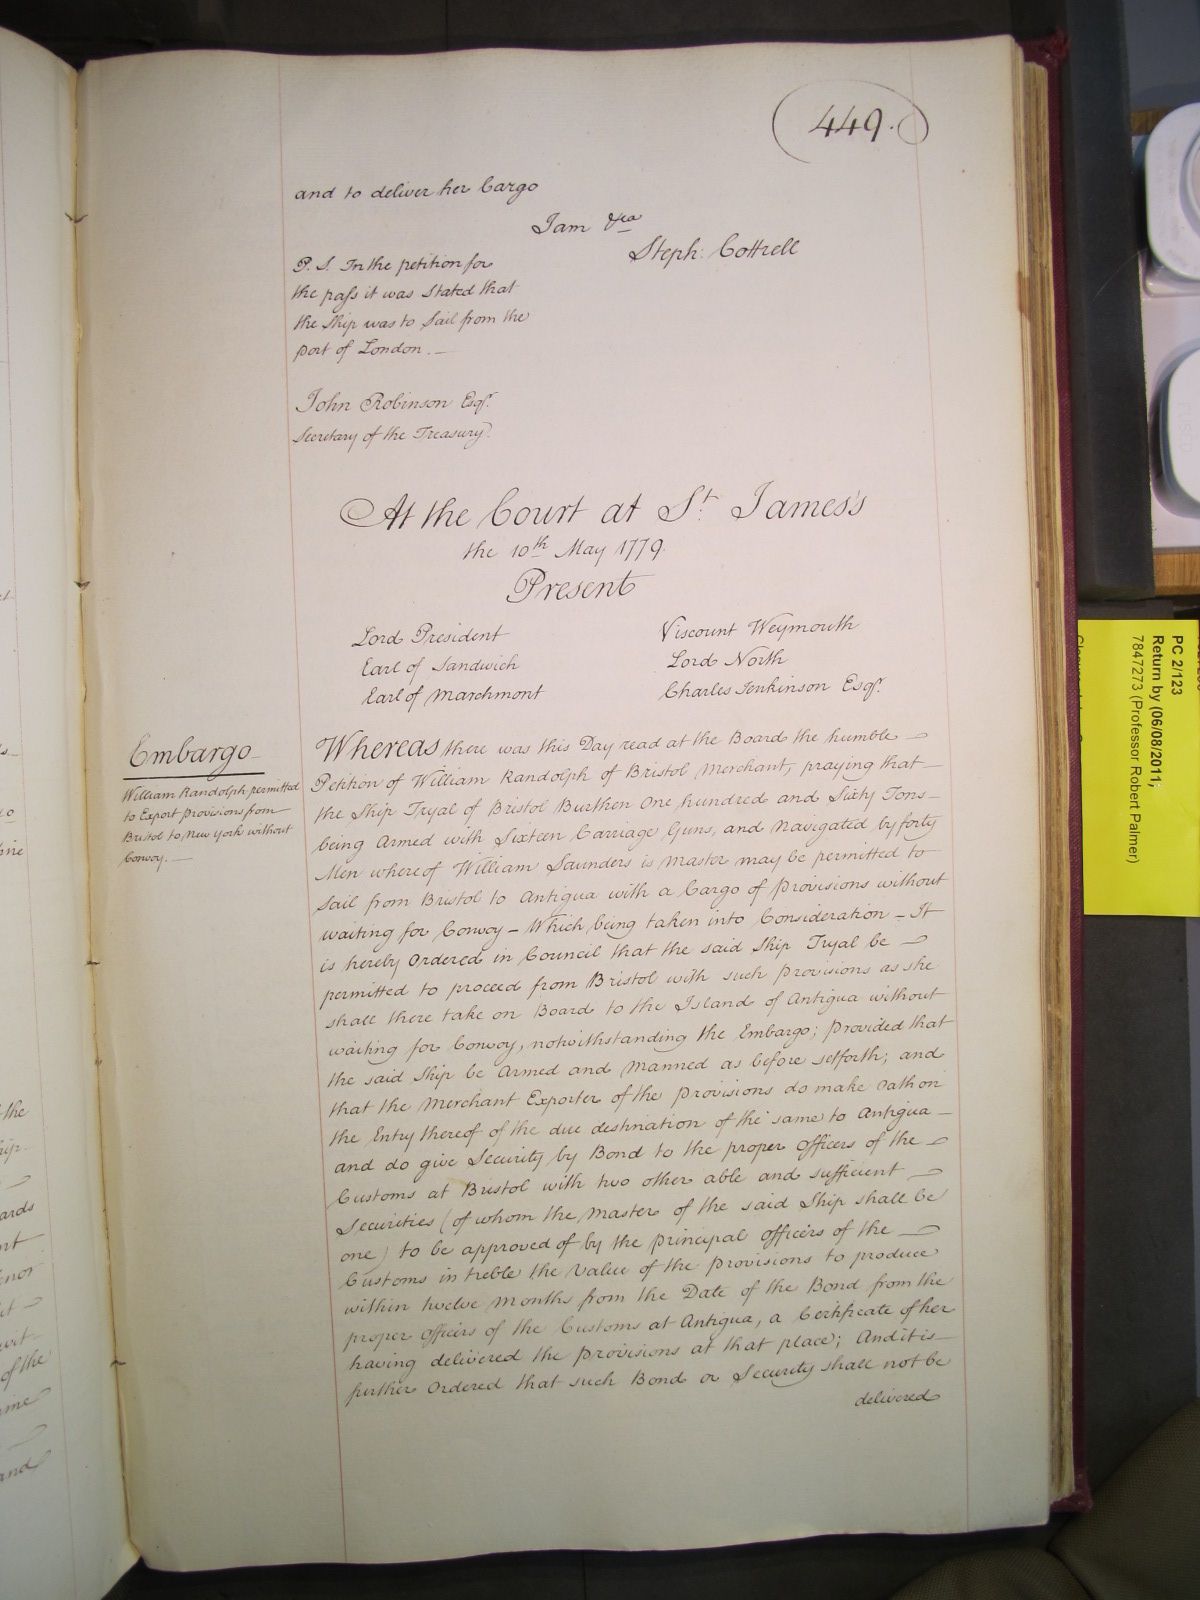 449.
and to deliver her Cargo
I am &ca
Steph: Cottrell
P. S. In the petition for
the pass it was Stated that
the Ship was to Sail from the
port of London. —
John Robinson Esqr.
Secretary of the Treasury.
At the Court at St. James's
the 10th May 1779.
Present
Lord President
Earl of Sandwich
Earl of Marchmont
Viscount Weymouth
Lord North
Charles Jenkinson Esqr.
Embargo
William Randolph permitted
to Export Provisions from
Bristol to New York without
Convoy. —
Whereas there was this Day read at the Board the humble
Petition of William Randolph of Bristol Merchant, praying that
the Ship Tryal of Bristol Burthen One hundred and Sixty Tons
being Armed with Sixteen Carriage Guns, and Navigated by forty
Men whereof William Saunders is Master may be permitted to
Sail from Bristol to Antigua with a Cargo of Provisions without
waiting for Convoy — Which being taken into Consideration — It
is hereby Ordered in Council that the said Ship Tryal be
permitted to proceed from Bristol with such Provisions as she
shall there take on Board to the Island of Antigua without
waiting for Convoy, notwithstanding the Embargo; provided that
the said Ship be Armed and Manned as before setforth; and
that the Merchant Exporter of the Provisions do make Oath on
the Entry thereof of the due destination of the same to Antigua —
and do give Security by Bond to the proper Officers of the
Customs at Bristol with two other able and sufficient
Securities (of whom the Master of the said Ship shall be
one) to be approved of by the Principal Officers of the
Customs in treble the Value of the Provisions to produce
within twelve Months from the Date of the Bond from the
proper Officers of the Customs at Antigua, a Certificate of her
having delivered the Provisions at that place; And it is
further Ordered that such Bond or Security shall not be
delivered
PC 2/123
Return by (06/08/2011;
7847273 (Professor Robert Palmer)